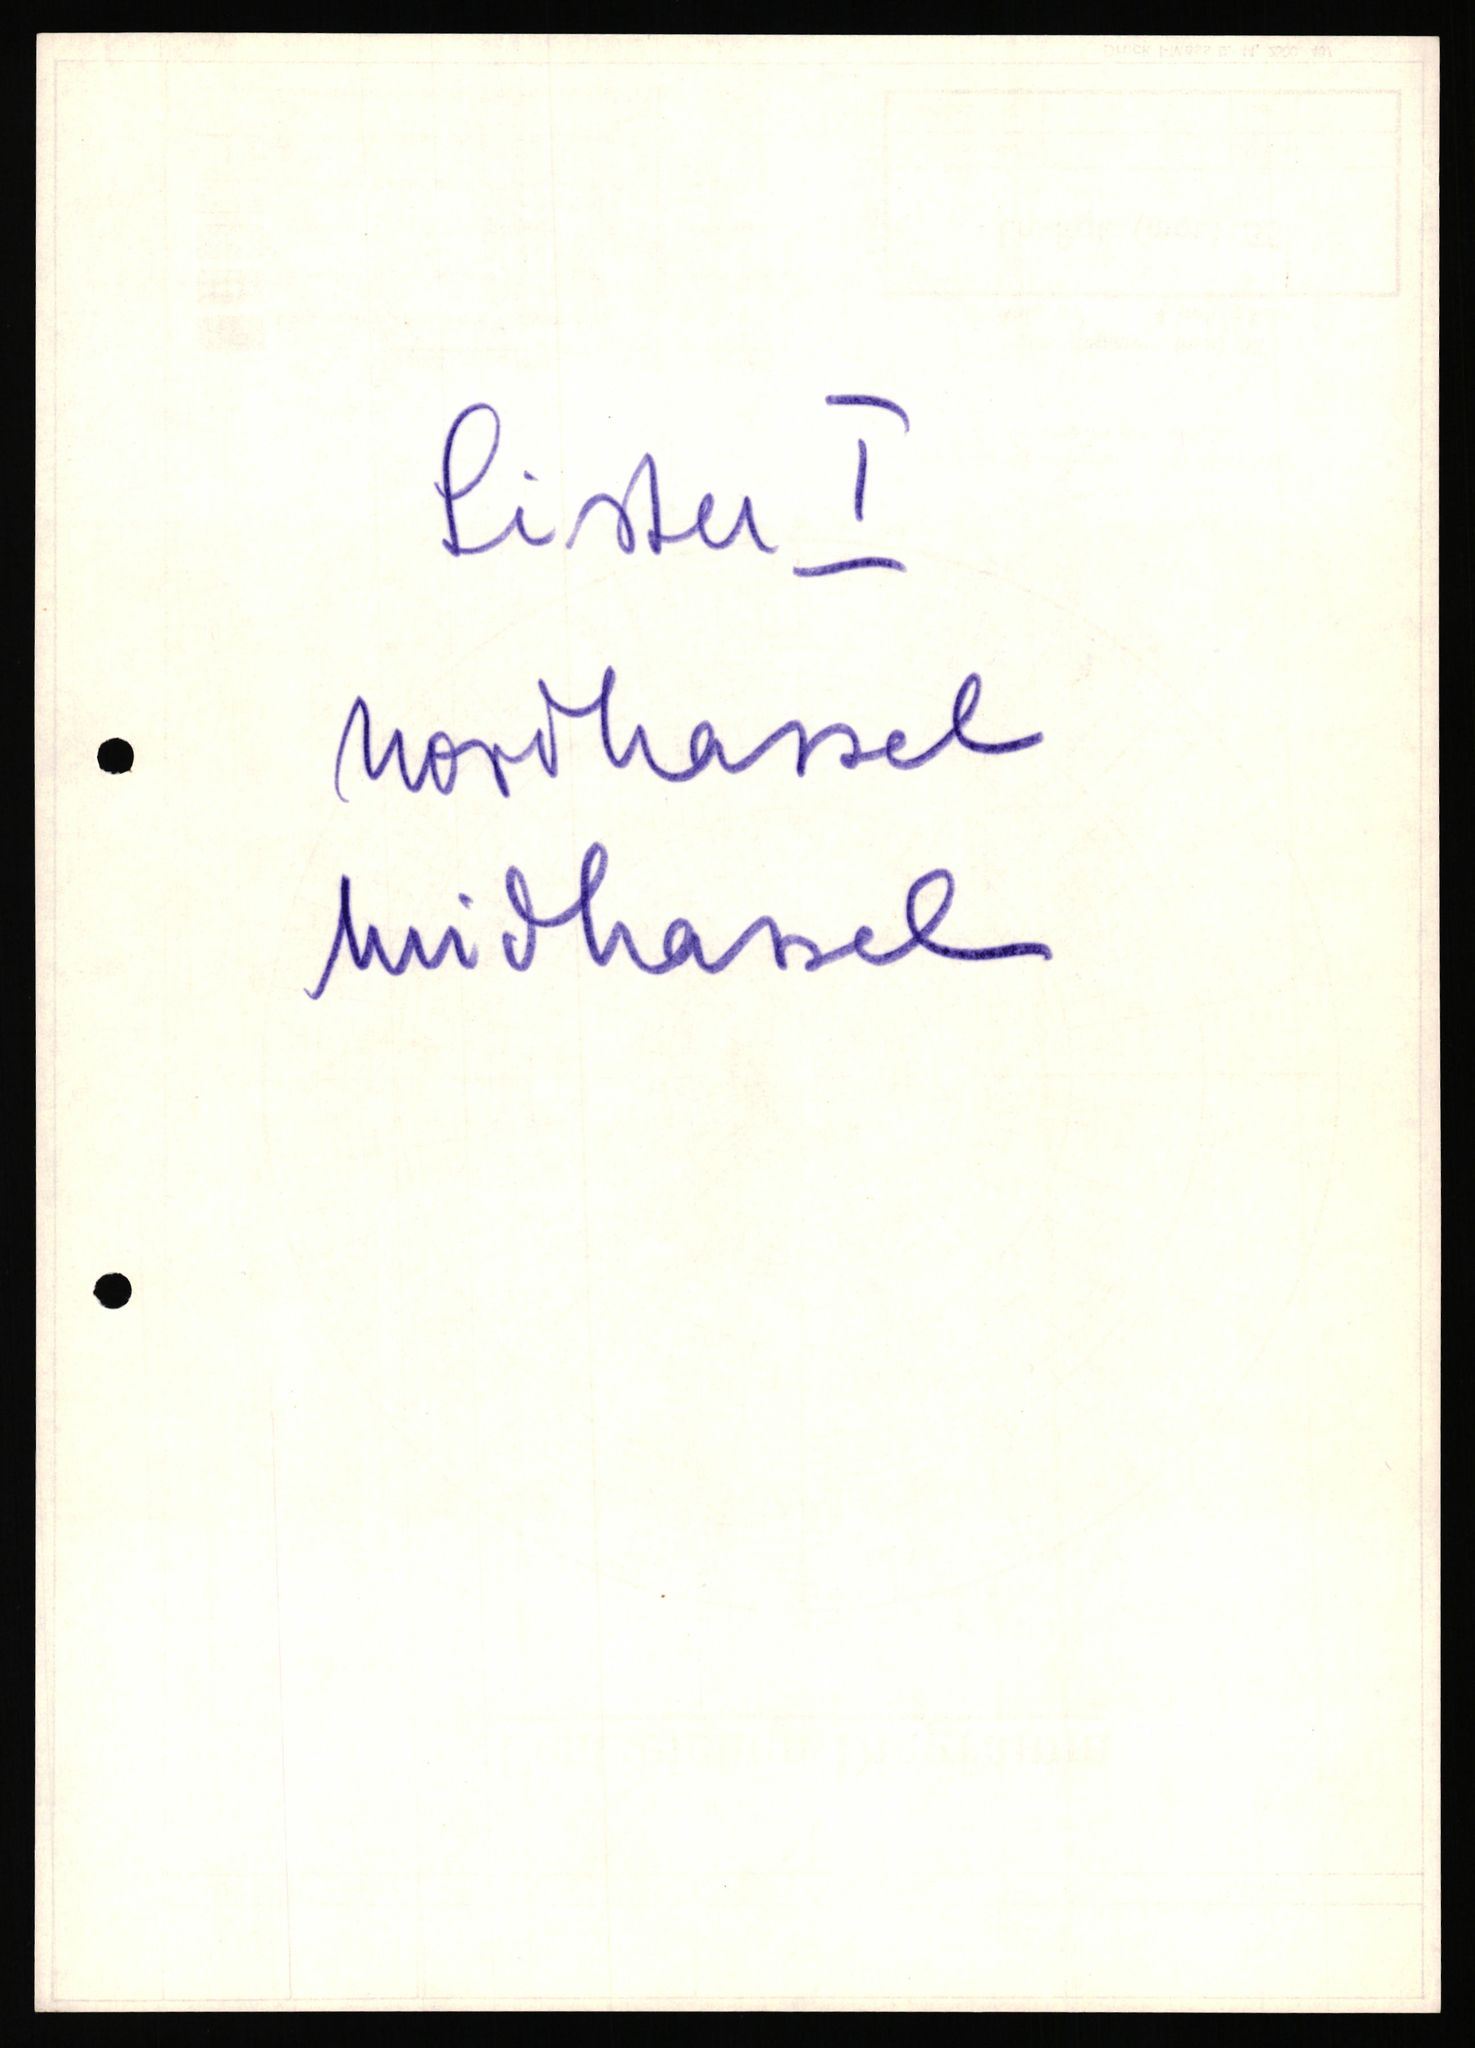 Lister I
Nordhassel
Midhassel